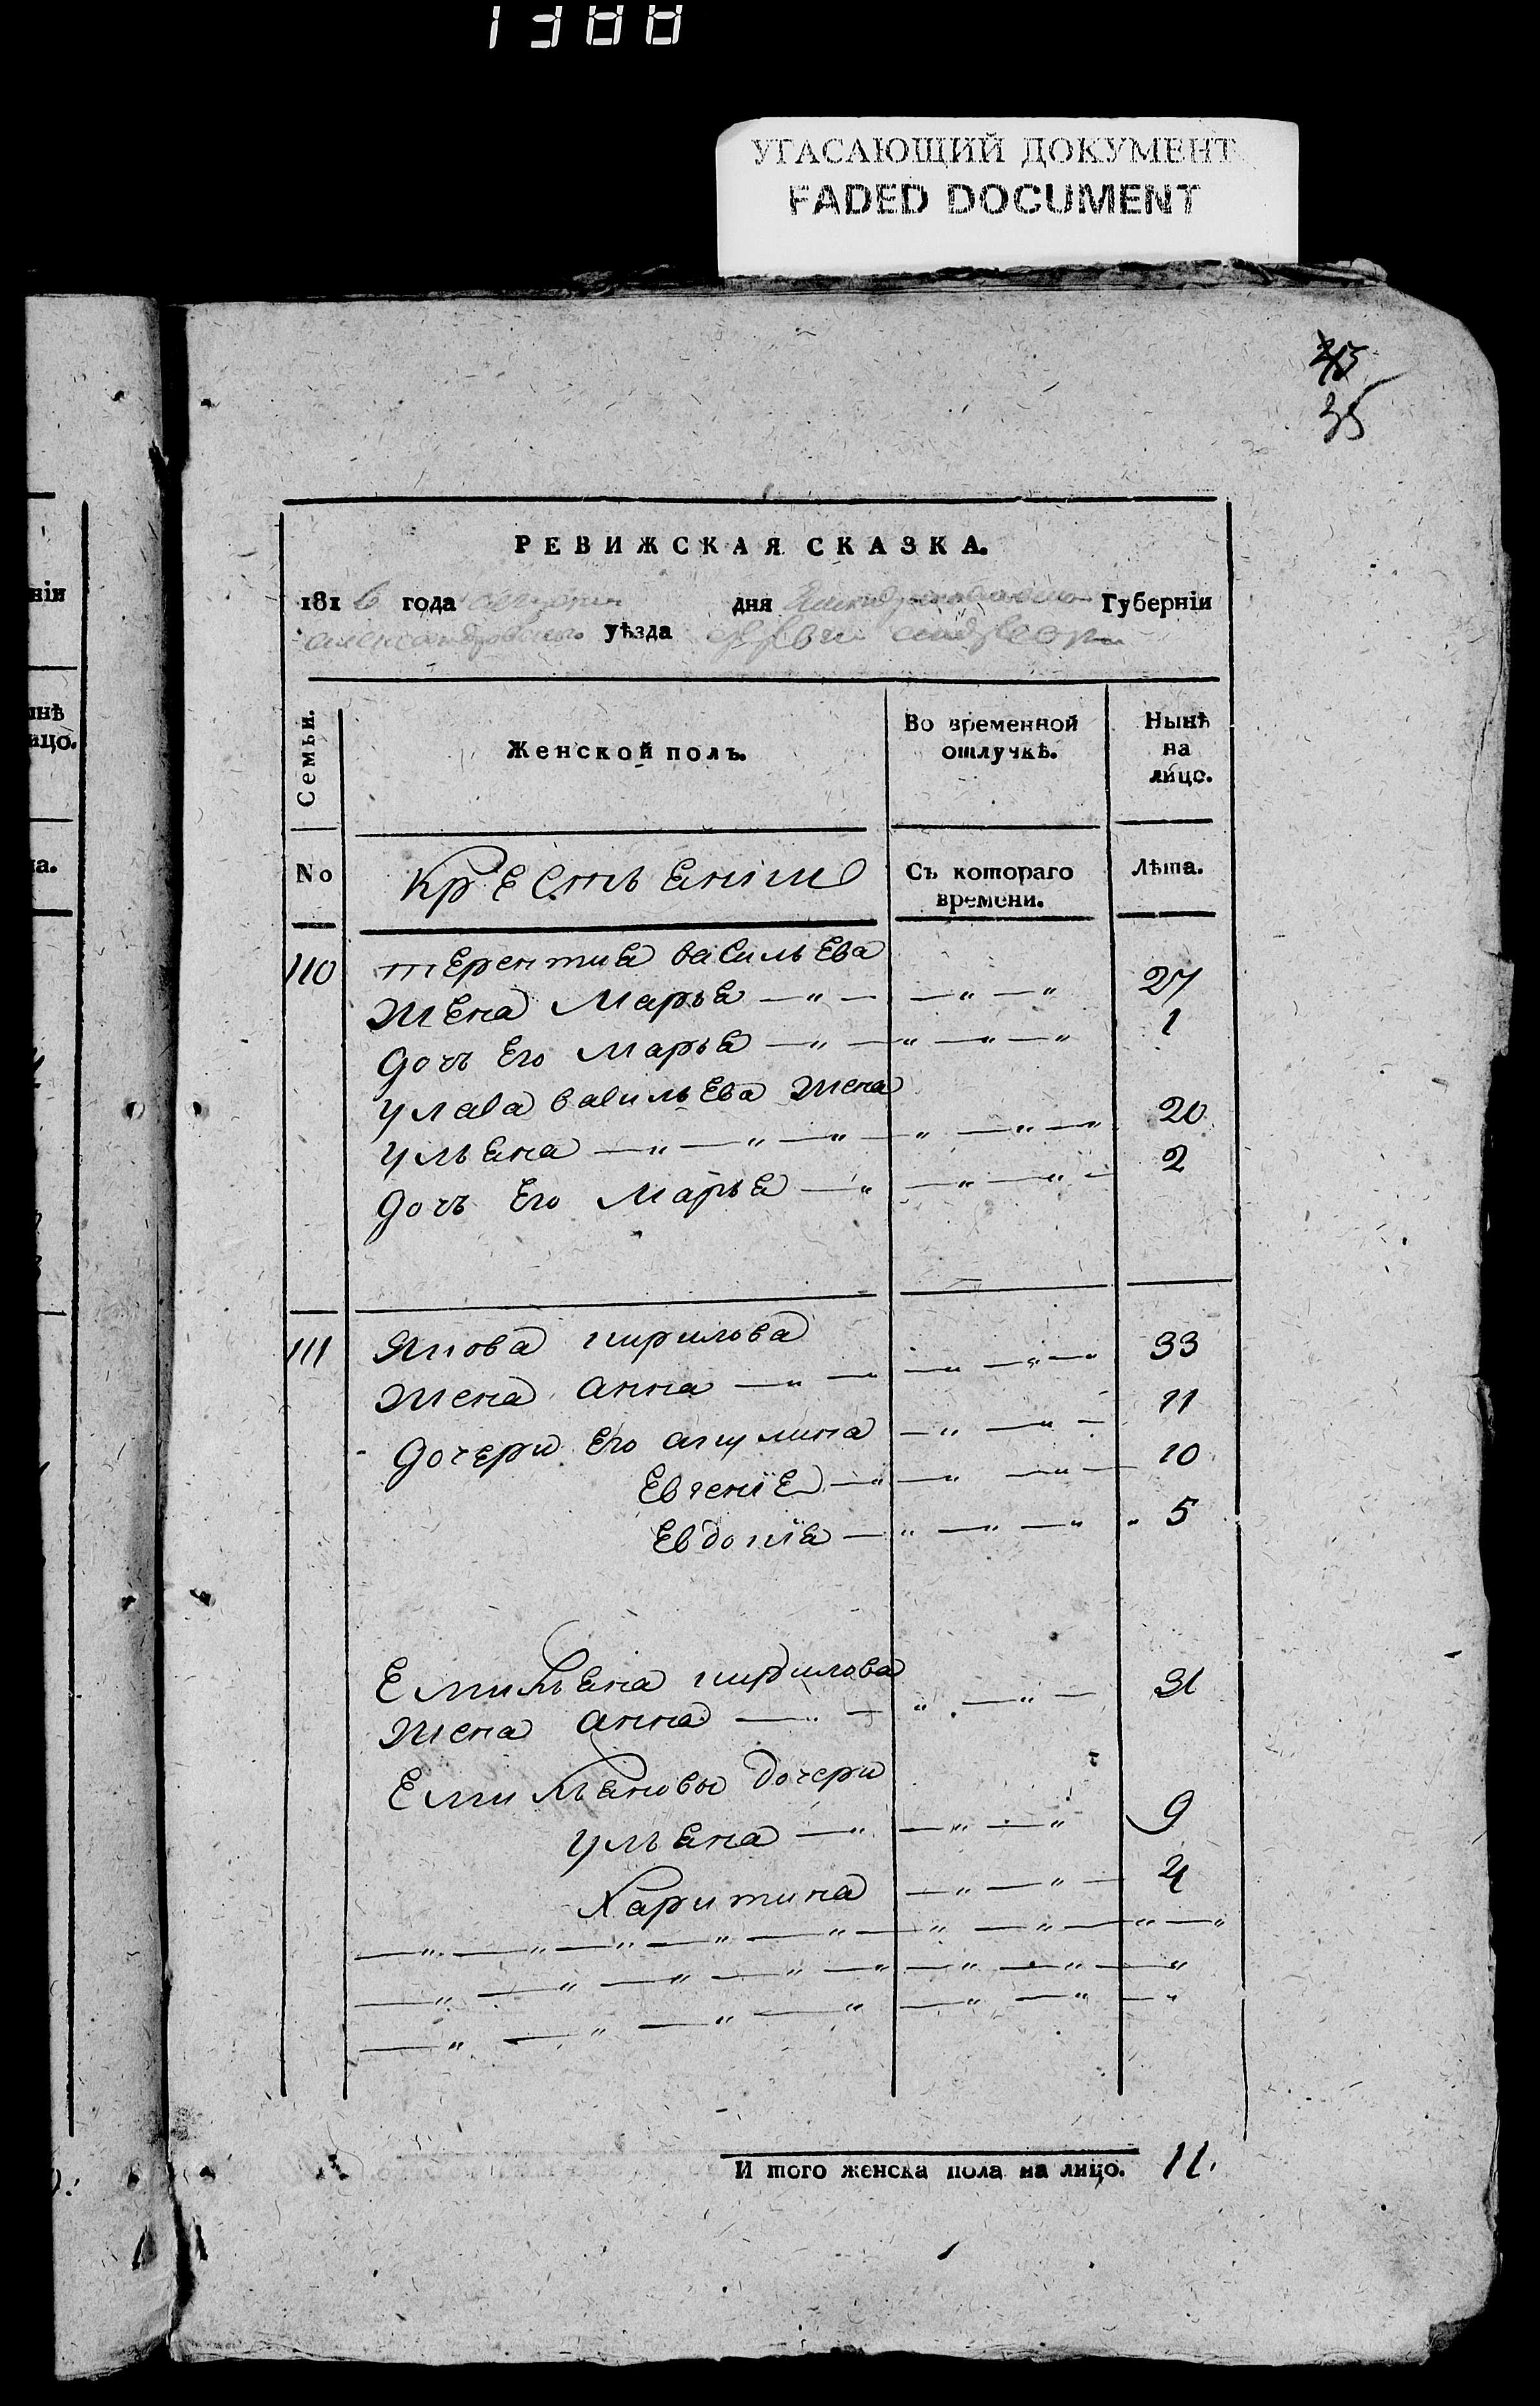 1388
УГАСАЮЩИЙ ДОКУМЕНТ
FADED DOCUMENT
45
35
РЕВИЖСКАЯ СКАЗКА.
1816 года дня Губерніи
александровского уѣзда
Семьи.
Женской полъ.
Во временной отлучкѣ.
Нынѣ на лицо.
No
крестьяніи
Съ котораго времени.
Лѣта.
110 терентиа васильева
жена марья — „ — — „ — „ 27
дочъ его марья — „ — „ — „ — „ 1
улава васильева жена
ульяна — „ — „ — „ — „ — „ — „ 20
дочъ его марья — „ — „ — „ — 2
111 якова кирилова 33
жена анна — „ — „ — „ — „ —
дочери его акулина — „ — „ — 11
Евгеніе — „ — „ — „ — 10
Евдокіа — „ — „ — „ „ 5
Емильяна кирилова
жена анна — „ — „ — „ — 31
Емильяновы дочери
ульяна — „ — „ — „ 9
Харитина — „ — „ — 4
И того женска пола на лицо. 11.